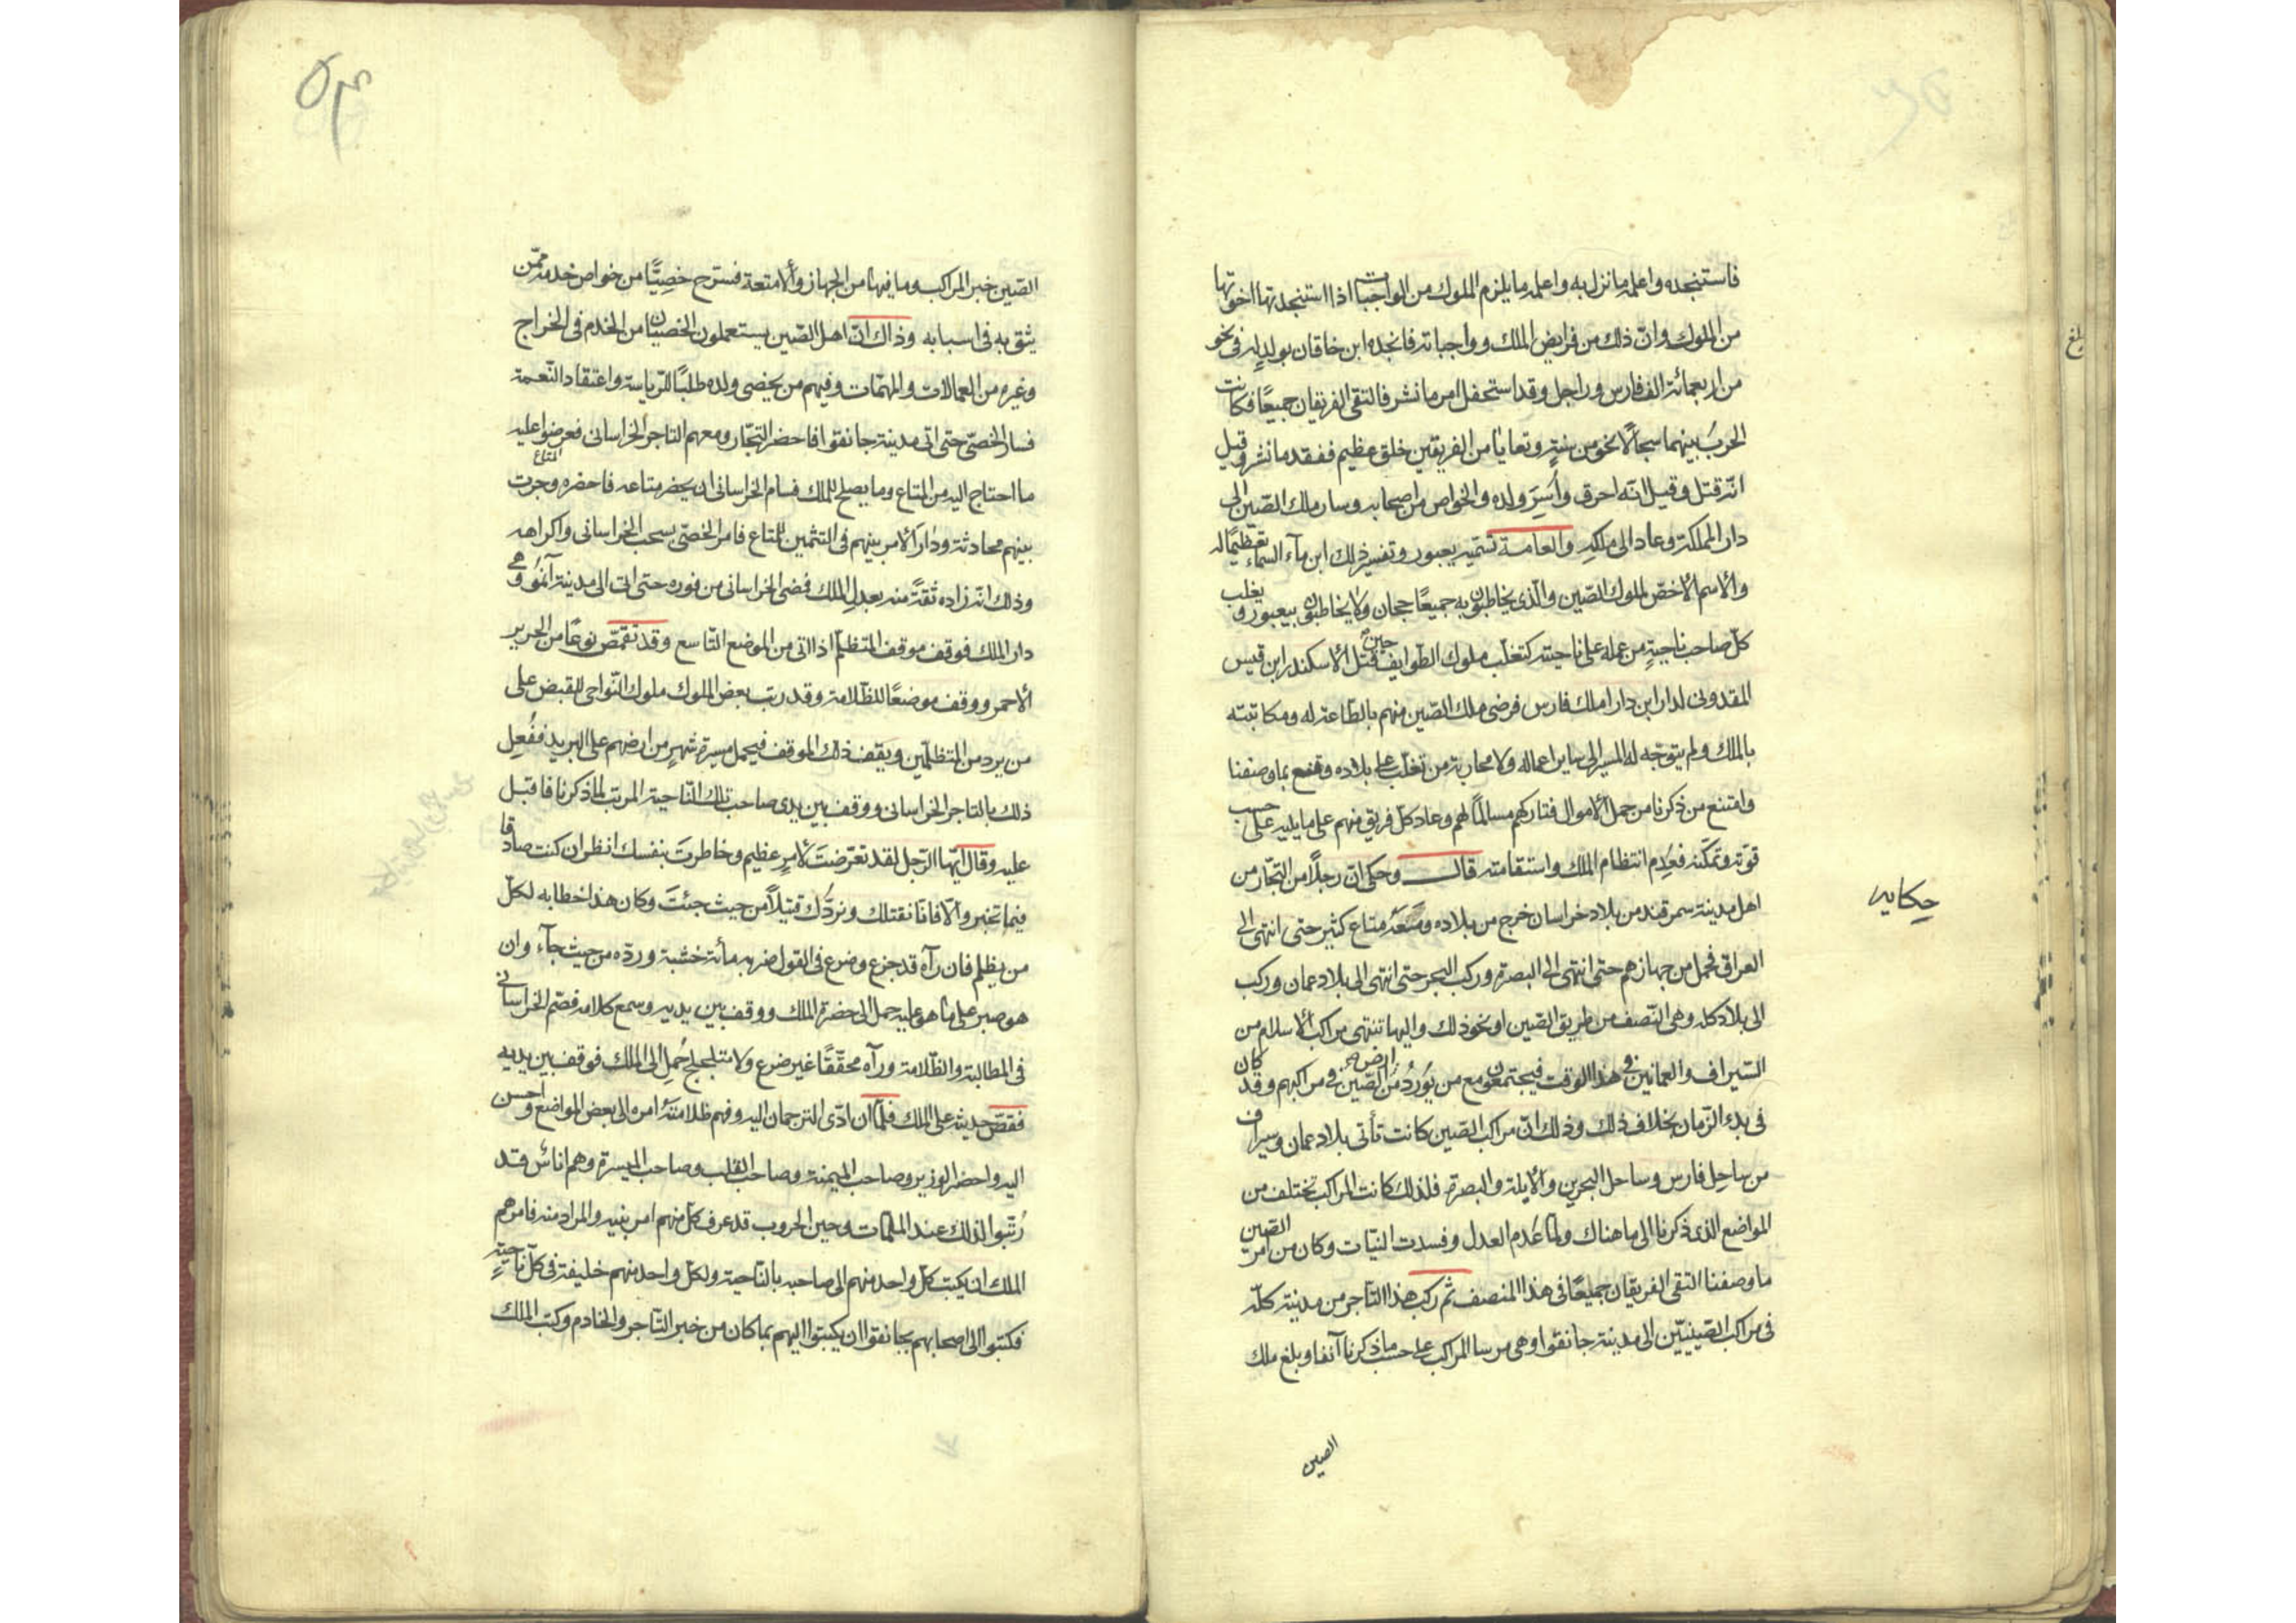 فاستنجده واعلمه ما نزل به واعلمه ما يلزم الملوك من الواجبات اذا استنجدتها اخوتها
من الملوك وانّ ذلك من فرايض الملك وواجباته فانجده ابن خاقان بولدٍ له في نحو
من اربعمائة الف فارس وراجل وقد استحفل امر مانشر فالتقى الفريقان جميعًا فكانت
الحربُ بينهما سجالًا نحو من سنةٍ وتفانا من الفريقين خلق عظيم ففقد مانشر وقيل
انّه قتل وقيل انّه احرق واُسِرَ ولده والخواص من اصحابه وسار ملك الصّين الى
دار المملكة وعاد الى ملكه والعامة تسمّيه يعبور وتفسير ذلك ابن مآء السماء تعظيمًا له
والاسم الاخصّ لملوك الصّين والّذي يخاطبون به جميعًا جحان ولا يخاطبون بيعبور ويغلب
كلّ صاحب ناحيةٍ من عمله على ناحيته كتغلّب ملوك الطّوايف حين قتل الاسكندر ابن قيس
المقدونى لدار ابن دارا ملك فارس فرضى ملك الصّين منهم بالطّاعة له ومكاتبته
بالملك ولم يتوجّه له المسير الى ساير اعماله ولا محاربة من تغلّب على بلاده وقنع بما وصفنا
وامتنع من ذكرنا من حمل الاموال فتاركهم مسالمًا لهم وعاد كلّ فريق منهم على ما يليه على حسب
قوّته وتمكّنه فعُدِم انتظام الملك واستقامته قال وحكى انّ رجلًا من التّجّار من
اهل مدينة سمرقند من بلاد خراسان خرج من بلاده ومعَهُ متاع كثير حتى انتهى الى
العراق فحمل من جهازهم حتى انتهى الى البصرة وركب البحر حتى انتهى الى بلاد عمان وركب
الى بلاد كله وهى النّصف من طريق الصّين او نحو ذلك واليها تنتهى مراكب الاسلام من
السّيراف والعمانين فى هذا الوقت فيجتمعون مع من يَوِردُ من ارض الصّين فى مراكبهم وقد كان
فى بدء الزّمان بخلاف ذلك وذلك انّ مراكب الصّين كانت تأتى بلاد عمان وسيراف
من ساحل فارس وساحل البحرين والابلة والبصرة فلذلك كانت المراكب تختلف من
المواضع الذى ذكرنا الى ما هناك ولمّا عُدم العدل وفسدت النيّات وكان من امر الصّين
ما وصفنا التقى الفريقان جميعًا فى هذا المنصف ثم ركب هذا التاجر من مدينة كلّه
فى مراكب الصّينيّين الى مدينة جانقوا وهى مرسا المراكب على حسب ما ذكرنا آنفا وبلغ ملك
الصين
حكايه
بلغ
الصّين خبر المراكب وما فيها من الجهاز والامتعة فسرّح خصِيًّا من خواص خدمه ممّن
يثق به فى اسبابه وذاك انّ اهل الصّين يستعملون الخصيان من الخدم فى الخراج
وغيره من العمالات والمهمّات وفيهم من يخصى ولده طلبًا للرّياسة واعتقاد النّعمة
فسار الخصىّ حتى اتى مدينة جانقوا فاحضر التجّار ومعهم التاجر الخراسانى فعرضوا عليه
ما احتاج اليه من المتاع وما يصلح للملك فسام الخراسانى ان يحضر متاعه فاحضره وجرت
المتاع
بينهم محادثة ودار الامر بينهم فى التثمين للمتاع فامر الخصىّ بسحب الخراسانى واكراهه
وذلك انّه زاده ثقةً منه بعدل الملك فمضى الخراسانى من فوره حتى اتى الى مدينة آنمُو وهى
دار الملك فوقف موقف المتظلّم اذا اتى من الموضع الشّاسع وقد تقمّص نوعًا من الحرير
الاحمر ووقف موضعًا للظّلامة وقد رتب بعض الملوك ملوك النّواحى للقبض على
من يرد من المتظلّمين ويقف ذلك الموقف فيحمل مسيرة شهرٍ من ارضهم على البريد ففُعِل
ذلك بالتاجر الخراسانى ووقف بين يدى صاحب تلك النّاحية المرتب لما ذكرنا فاقبل
عليه وقال ايّها الرّجل لقد تعرّضتَ لامرٍ عظيم وخاطرتَ بنفسك انظر ان كنت صادقا
فيما تخبر والّا فانّا نقتلك ونردُّك قتيلًا من حيث جئتَ وكان هذا خطابه لكلّ
من يظلم فان رآه قد جزع وضرع فى القول ضربه مأئة خشبة وردّه من حيث جآء وان
هو صبر على ما هو عليه حمل الى حضرة الملك ووقف بين يديه وسمع كلامه فصمّم الخراسانى
فى المطالبة والظّلامة ورآه محقّقًا غير ضرع ولا متلجلج حُمِل الى الملك فوقف بين يديه
فقصّ حديثه على الملك فلمّا ان ادّى الترجمان اليه وفهم ظلامتَهُ امره الى بعض المواضع واحسن
اليه واحضر الوزير وصاحب الميمنة وصاحب القلب وصاحب الميسرة وهم اناسٌ قد
رُتّبوا لذلك عند الملمّات وحين الحروب قد عرف كلّ منهم امر بنيه والمراد منه فامرهم
الملك ان يكتب كلّ واحد منهم الى صاحبه بالنّاحية ولكلّ واحد منهم خليفة فى كلّ ناحيةٍ
فكتبوا الى اصحابهم بجانقوا ان يكتبوا اليهم بما كان من خبر التّاجر والخادم وكتب الملك